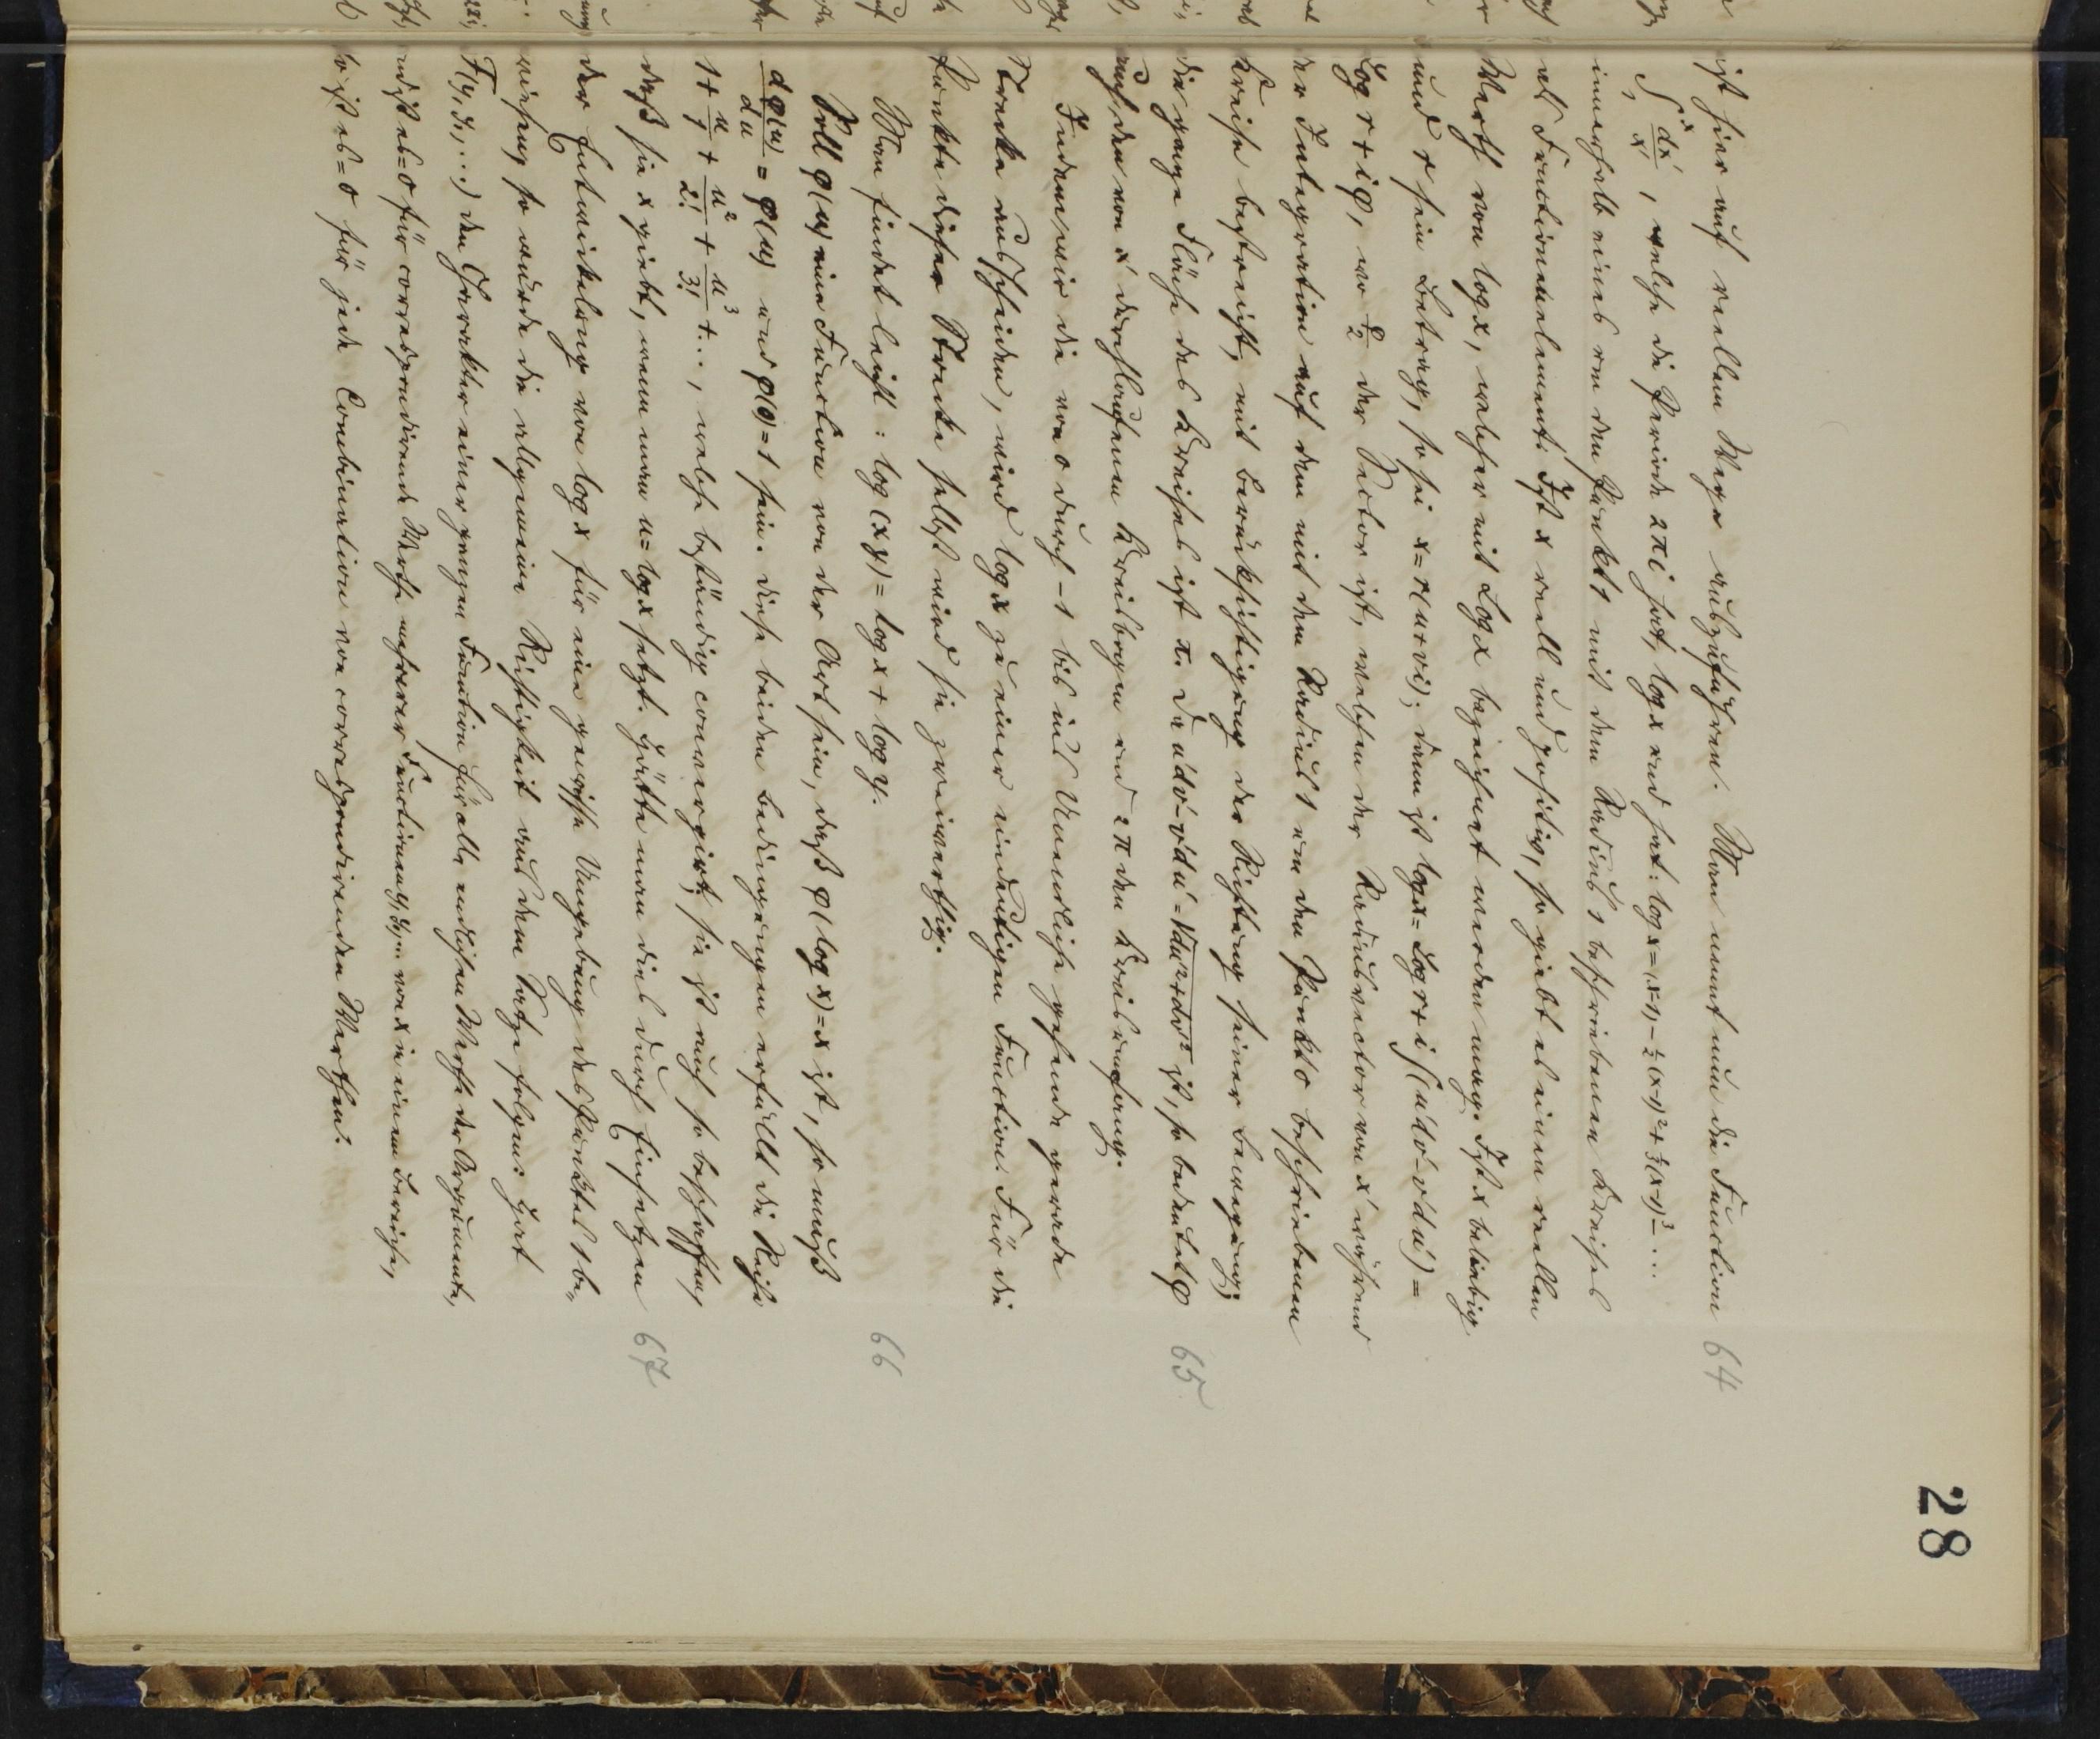 28
ist hier auf reellem Wege auszuführen. Man nennt nun die Function 64
∫₁ˣ dx'/x', welche die Periode 2πi hat, log x und hat: log x = (x-1) - ½(x-1)² + ⅓(x-1)³ - ...
innerhalb eines um den Punkt 1 mit dem Radius 1 beschriebenen Kreises
als Functionenelement. Ist x reell und positiv, so giebt es einen reellen
Werth von log x, welcher mit Log x bezeichnet werden mag. Ist x beliebig
und r sein Betrag, so sei x = r(u+vi); dann ist log x = Log r + i∫(u'dv'-v'du') =
Log r + iφ, wo φ/2 der Sector ist, welchen der Radiusvector von x' während
der Integration auf dem mit dem Radius 1 um den Punkt 0 beschriebenen
Kreise bestreicht, mit Berücksichtigung der Richtung seiner Bewegung;
die ganze Fläche des Kreises ist π. Da u'dv'-v'du' = √du'²+dv'² ist, so bedeutet φ 65
auch den von x' durchlaufenen Kreisbogen und 2π den Kreisumfang.
Indem wir die von 0 durch -1 bis ins Unendliche gehende gerade
Strecke ausscheiden, wird log x zu einer eindeutigen Function. Für die
Punkte dieser Strecke selbst wird sie zweiwerthig.
Man findet leicht: log(xy) = log x + log y. 66
Soll φ(u) eine Function von der Art sein, dass φ(log x) = x ist, so muss
dφ(u)/du = φ(u) und φ(0) = 1 sein. Diese beiden Bedingungen erfüllt die Reihe
1 + u/1 + u²/2! + u³/3! + ..., welche beständig convergirt; sie ist auch so beschaffen,
dass sie x giebt, wenn man u = log x setzt. Hätte man dies durch Einsetzen 67
der Entwickelung von log x für eine gewisse Umgebung des Punktes 1 be-
wiesen, so würde die allgemeine Richtigkeit aus dem Satze folgen: Hat
F(y, y₁, ...) den Charakter einer ganzen Function für alle endlichen Werthe der Argumente,
und ist es = 0 für correspondirende Werthe mehrerer Functionen y, y₁, ... von x in einem Bereiche,
so ist es = 0 für jede Combination von correspondirenden Werthen.